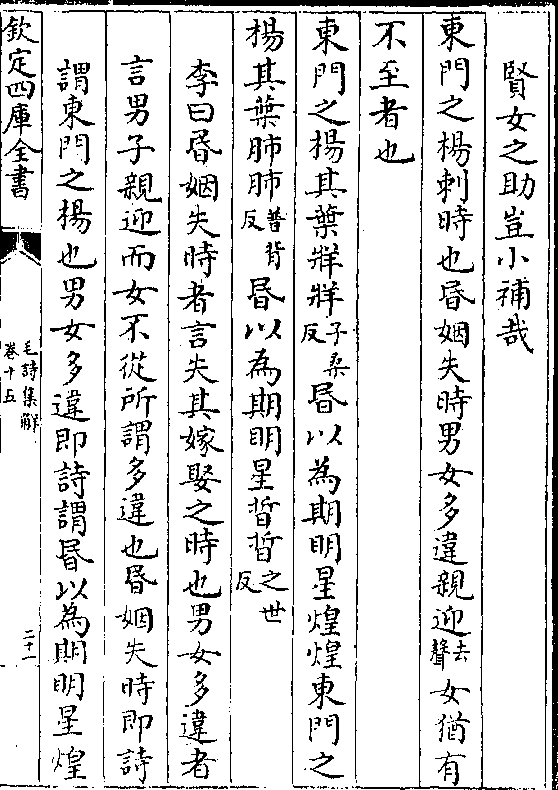 賢女之助豈小補哉
東門之楊刺時也昬姻失時男女多違親迎去聲女猶有
不至者也
東門之楊其葉牂牂子桒反昬以為期明星煌煌東門之
楊其葉肺肺普背反昬以為期明星晢晢之世反
李曰昬姻失時者言失其嫁娶之時也男女多違者
言男子親迎而女不從所謂多違也昬姻失時即詩
謂東門之楊也男女多違即詩謂昬以為期明星煌
欽定四庫全書
毛詩集解
卷十五
二十一